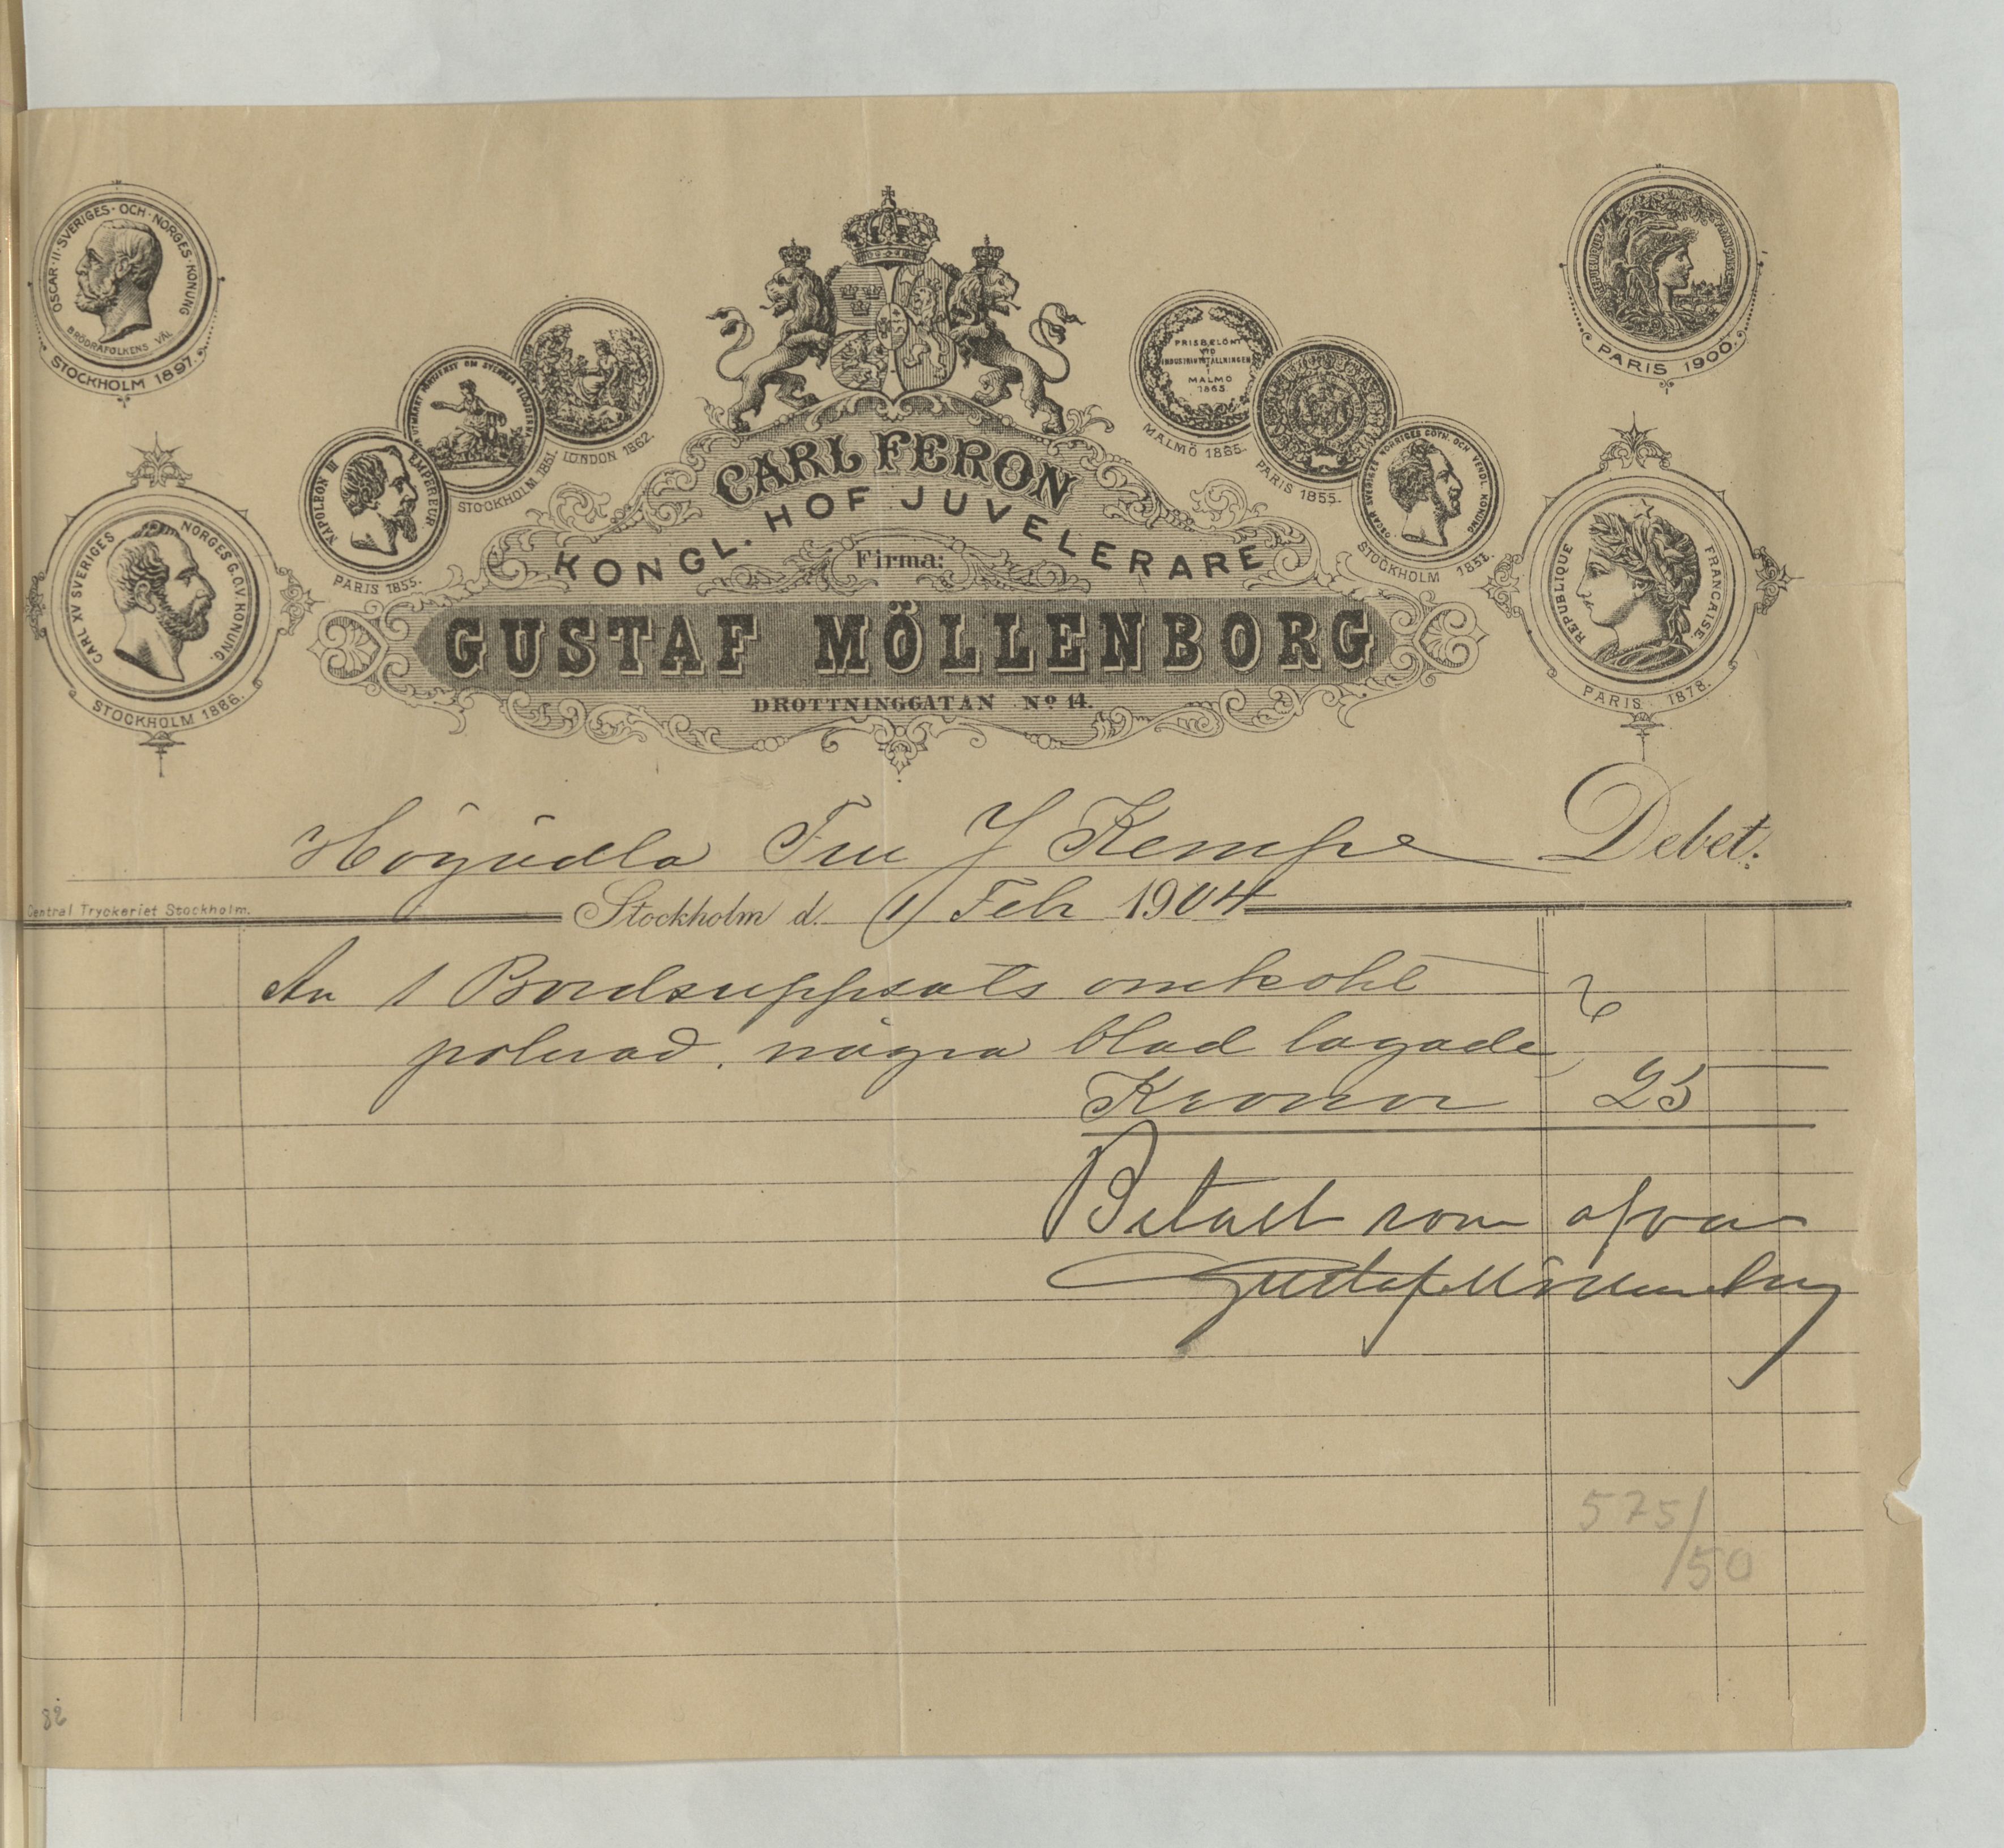 OSCAR·II·SVERIGES·OCH·NORGES·KONUNG
BRÖDRAFOLKENS VÄL
STOCKHOLM 1897.
LONDON 1862.
STOCKHOLM 1851.
NAPOLEON III EMPEREUR
PARIS 1855.
CARL XV SVERIGES NORGES G.O.V. KONUNG.
STOCKHOLM 1866.
PRISBELÖNT
VID
INDUSTRIUTSTÄLLNINGEN
I
MALMÖ
1865.
MALMÖ 1865.
PARIS 1855.
OSCAR SVERIGES NORRIGES GÖTH. OCH VENDL. KONUNG
STOCKHOLM 1852.
PARIS 1900.
REPUBLIQUE FRANCAISE.
PARIS 1878.
CARL FERON
KONGL. HOF JUVELERARE
Firma:
GUSTAF MÖLLENBORG
DROTTNINGGATAN No 14.
Högädla Fru J Kempe Debet.
Central Tryckeriet Stockholm.
Stockholm d. 1 Feb 1904
An 1 Bordsuppsats omkokt
polerad, några blad lagade
Kronor 25
Betalt som ofvan
Gustaf Möllenborg
575/
50
82